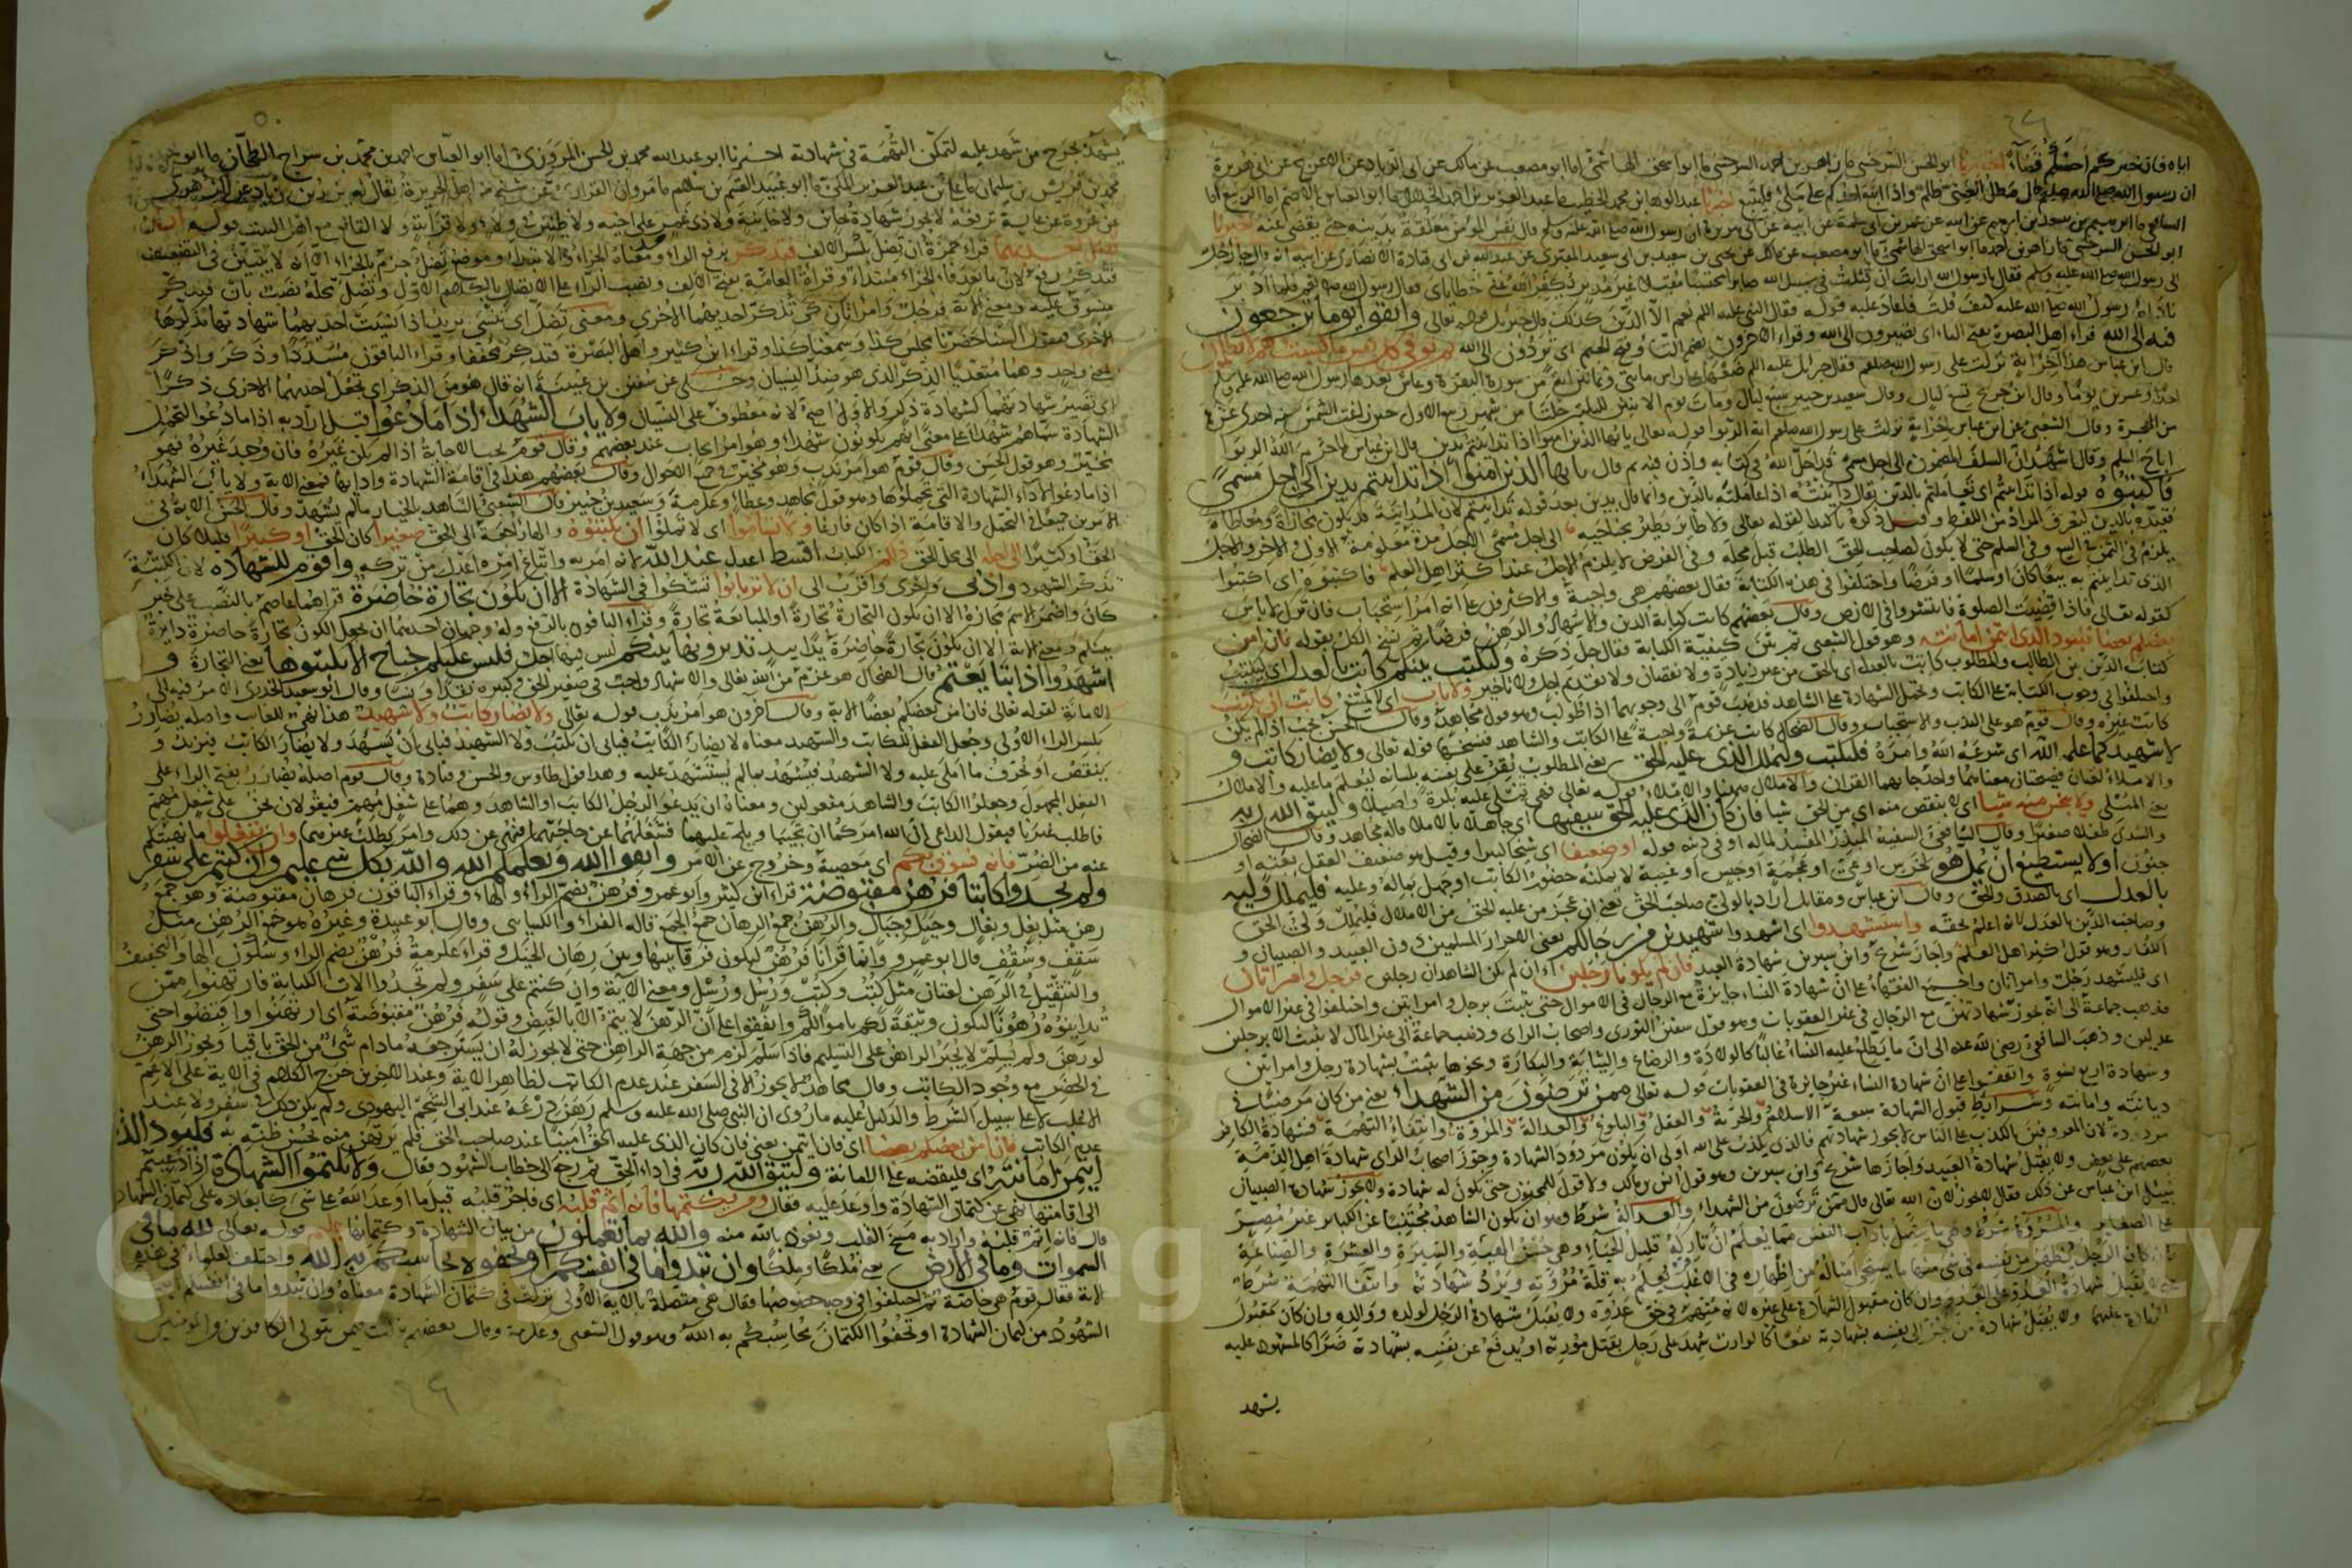 اياه فان خيركم احسنكم قضآءً اخبرنا ابو الحسن السرخسي انا زاهر بن احمد السرخسي انا ابو اسحق الهاشمي انا ابو مصعب عن مالك عن ابي الزناد عن الاعرج عن ابي هريرة
ان رسول الله صلى الله عليه وسلم قال مطل الغني ظلم واذا اتبع احدكم على ملئ فليتبع اخبرنا عبد الوهاب بن محمد الخطيب انا عبد العزيز بن احمد الخلال انا ابو العباس الاصم انا الربيع انا
الشافعي انا ابرهيم بن سعد بن ابرهيم عن ابيه عن عمر بن ابي سلمة عن ابيه عن ابي هريرة ان رسول الله صلى الله عليه وسلم قال نفس المؤمن معلقة بدينه حتى يقضى عنه اخبرنا
ابو الحسن السرخسي انا زاهر بن احمد انا ابو اسحق الهاشمي انا ابو مصعب عن مالك عن يحيى بن سعيد بن ابي سعيد المقبري عن عبد الله بن ابي قتادة الانصاري عن ابيه انه قال جاء رجل
الى رسول الله صلى الله عليه وسلم فقال يا رسول الله ارايت ان قتلت في سبيل الله صابرا محتسبا مقبلا غير مدبر يكفر الله عني خطاياي فقال رسول الله نعم فلما ادبر
ناداه رسول الله صلى الله عليه كيف قلت فاعاد عليه قوله فقال النبي عليه السلم نعم الا الدين كذلك قال جبريل قوله تعالى واتقوا يوما ترجعون
فيه الى الله قراء اهل البصرة بفتح التاء اي تصيرون الى الله وقراء الآخرون بضم التاء وفتح الجيم اي تردون الى الله ثم توفى كل نفس ما كسبت وهم لا يظلمون
قال ابن عباس هذا آخر آية نزلت على رسول الله صلعم فقال جبريل عليه السلم ضعها على راس مايتي وثمانين آية من سورة البقرة وعاش بعدها رسول الله صلى الله عليه وسلم
احدى وعشرين يوما وقال ابن جريج تسع ليال وقال سعيد بن جبير سبع ليال ومات يوم الاثنين لليلتين خلتا من شهر ربيع الاول حين زاغت الشمس سنة احدى عشرة
من الهجرة وقال الشعبي عن ابن عباس آخر آية نزلت على رسول الله صلعم آية الربوا قوله تعالى يا ايها الذين امنوا اذا تداينتم بدين قال ابن عباس لما حرم الله الربوا
اباح السلم وقال اشهد ان السلف المضمون الى اجل مسمى قد احل الله في كتابه واذن فيه ثم قال يا ايها الذين امنوا اذا تداينتم بدين الى اجل مسمى
فاكتبوه قوله اذا تداينتم اي تعاملتم بالدين يقال داينته اذا عاملته بالدين وانما قال بدين بعد قوله تداينتم لان المداينة قد يكون مجازاة ومعاطاة
فقيده بالدين ليعرف المراد من اللفظ وقيل ذكره تاكيدا لقوله تعالى ولا طاير يطير بجناحيه الى اجل مسمى الاجل مدة معلومة الاول والاخر والاجل
يلزم في الثمن في البيع وفي السلم حتى لا يكون لصاحب الحق الطلب قبل محله وفي القرض لا يلزم الاجل عند اكثر اهل العلم فاكتبوه اي اكتبوا
الذي تداينتم به بيعا كان او سلما او قرضا واختلفوا في هذه الكتابة فقال بعضهم هي واجبة والاكثرون على انه امر استحباب فان ترك لا باس
كقوله تعالى فاذا قضيت الصلوة فانتشروا في الارض وقال بعضهم كانت كتابة الدين والاشهاد والرهن فرضا ثم نسخ الكل بقوله فان امن
بعضكم بعضا فليود الذي اؤتمن امانته وهو قول الشعبي ثم بين كيفية الكتابة فقال جل ذكره وليكتب بينكم كاتب بالعدل اي ليكتب
كتاب الدين بين الطالب والمطلوب كاتب بالعدل اي بالحق من غير زيادة ولا نقصان ولا تقديم اجل ولا تاخير ولا ياب اي لا يمتنع كاتب ان يكتب
واختلفوا في وجوب الكتابة على الكاتب وتحمل الشهادة على الشاهد فذهب قوم الى وجوبها اذا طولب وهو قول مجاهد وقال الحسن يجب اذا لم يكن
كاتب غيره وقال قوم هو على الندب والاستحباب وقال الضحاك كانت عزيمة واجبة على الكاتب والشاهد فنسخها قوله تعالى ولا يضار كاتب و
لا شهيد كما علمه الله اي شرعه الله وامره فليكتب وليملل الذي عليه الحق يعني المطلوب يقر على نفسه بلسانه ليعلم ما عليه والاملال
والاملاء لغتان فصيحتان معناهما واحد جا بهما القران والاملال ههنا والاملاء قوله تعالى فهي تملى عليه بكرة واصيلا وليتق الله ربه
يعني المملي ولا يبخس منه شيا اي لا ينقص منه اي من الحق شيا فان كان الذي عليه الحق سفيها اي جاهلا بالاملال قاله مجاهد وقال الضحاك
والسدي طفلا صغيرا وقال الشافعي السفيه المبذر المفسد لماله او في دينه قوله او ضعيفا اي شيخا كبيرا وقيل هو ضعيف العقل بعته او
جنون او لا يستطيع ان يمل هو لخرس او عي او عجمة او حبس او غيبة لا يمكنه حضور الكاتب او جهل بماله وعليه فليملل وليه
بالعدل اي بالصدق والحق وقال ابن عباس ومقاتل اراد بالولي صاحب الحق يعني ان عجز من عليه الحق من الاملال فليملل ولي الحق
وصاحب الدين بالعدل لانه اعلم بحقه واستشهدوا اي اشهدوا شهيدين من رجالكم يعني الاحرار المسلمين دون العبيد والصبيان و
الكفار وهو قول اكثر اهل العلم واجاز شريح وابن سيرين شهادة العبيد فان لم يكونا رجلين اي ان لم يكن الشاهدان رجلين فرجل وامراتان
اي فليستشهد رجل وامراتان واجمع الفقهاء على ان شهادة النساء جايزة مع الرجال في الاموال حتى يثبت برجل وامراتين واختلفوا في غير الاموال
فذهب جماعة الى انه يجوز شهادتهن مع الرجال في غير العقوبات وهو قول سفين الثوري واصحاب الراي وذهب جماعة الى غير المال لا يثبت الا برجلين
عدلين وذهب الشافعي رضي الله عنه الى ان ما يطلع عليه النساء غالبا كالولادة والرضاع والثيابة والبكارة ونحوها يثبت بشهادة رجل وامراتين
وشهادة اربع نسوة واتفقوا على ان شهادة النساء غير جايزة في العقوبات قوله تعالى ممن ترضون من الشهداء يعني من كان مرضيا في
ديانته وامانته وشرايط قبول الشهادة سبعة الاسلام والحرية والعقل والبلوغ والعدالة والمروة وانتفاء التهمة فشهادة الكافر
مردودة لان المعروفين بالكذب على الناس لا يجوز شهادتهم فالذي يكذب على الله اولى ان يكون مردود الشهادة وجوز اصحاب الراي شهادة اهل الذمة
بعضهم على بعض ولا يقبل شهادة العبيد واجازها شريح وابن سيرين وهو قول انس بن مالك ولا قول للمجنون حتى يكون له شهادة ولا يجوز شهادة الصبيان
سئل ابن عباس عن ذلك فقال لا يجوز لان الله تعالى قال ممن ترضون من الشهداء والعدالة شرط وهو ان يكون الشاهد مجتنبا عن الكباير غير مصر
على الصغاير والمروة شرط وهي ما يتصل بآداب النفس مما يعلم ان تاركه قليل الحياء وهي حسن الهيئة والسيرة والعشرة والصناعة
فاذا كان الرجل يظهر من نفسه في شئ منها ما يستحي امثاله من اظهاره في الاغلب يعلم به قلة مروته ويرد شهادته وانتفاء التهمة شرط
حتى لا يقبل شهادة العدو على العدو وان كان مقبول الشهادة على غيره لانه متهم في حق عدوه ولا يقبل شهادة الرجل لولده ووالده وان كان مقبول
الشهادة عليهما ولا يقبل شهادة من يجر الى نفسه بشهادته نفعا كالوارث شهد على رجل بقتل مورثه او يدفع عن نفسه بشهادة ضررا كالمشهود عليه
يشهد
يشهد بجرح من شهد عليه لتمكن التهمة في شهادته اخبرنا ابو عبد الله محمد بن الحسن المروزي انا ابو العباس احمد بن محمد بن سراج الطحان انا ابو احمد
محمد بن قريش بن سليمان انا علي بن عبد العزيز المكي انا ابو عبيد القسم بن سلام انا مروان الفزاري عن شيخ من اهل الجزيرة يقال له يزيد بن زياد عن الزهري
عن عروة عن عايشة ترفعه لا يجوز شهادة خائن ولا خائنة ولا ذي غمر على اخيه ولا ظنين في ولاء ولا قرابة ولا القانع مع اهل البيت قوله ان
تضل احديهما قراء حمزة ان تضل بكسر الالف فتذكر برفع الراء ومعناه الجزاء والابتداء وموضع تضل جزم بالجزاء الا انه لا يتبين في التضعيف
فتذكر رفع لان ما بعد فاء الجزاء مبتداء وقراءة العامة بفتح الالف ونصب الراء على الاتصال بالكلام الاول وتضل محله نصب بان فتذكر
منسوق عليه ومعنى الآية فرجل وامراتان كي تذكر احديهما الاخرى ومعنى تضل اي تنسى يريد اذا نسيت احديهما شهادتها تذكرها
الاخرى فتقول السنا حضرنا مجلس كذا وسمعنا كذا وقراء ابن كثير واهل البصرة فتذكر مخففا وقراء الباقون مشددا وذكر واذكر
بمعنى واحد وهما متعديا الذكر الذي هو ضد النسيان وحكي عن سفين بن عيينة انه قال هو من الذكر اي تجعل احديهما الاخرى ذكرا
اي تصير شهادتهما كشهادة ذكر والاول اصح لانه معطوف على النسيان ولا ياب الشهداء اذا ما دعوا قيل اراد به اذا ما دعوا لتحمل
الشهادة سماهم شهداء على معنى انهم يكونون شهداء وهو امر ايجاب عند بعضهم وقال قوم يجب الاجابة اذا لم يكن غيره فان وجد غيره فهو
مخير وهو قول الحسن وقال قوم هو امر ندب وهو مخير في جميع الاحوال وقال بعضهم هذا في اقامة الشهادة وادايها فمعنى الآية ولا ياب الشهداء
اذا ما دعوا لاداء الشهادة التي تحملوها وهو قول مجاهد وعطاء وعكرمة وسعيد بن جبير وقال الشعبي الشاهد بالخيار ما لم يشهد وقال الحسن الآية في
الامرين جميعا في التحمل والاقامة اذا كان فارغا ولا تساموا اي لا تملوا ان تكتبوه والهاء راجعة الى الحق صغيرا كان الحق او كبيرا قليلا كان
الحق او كثيرا الى اجله الى محل الحق ذلكم الكتاب اقسط اعدل عند الله لانه امر به واتباع امره اعدل من تركه واقوم للشهادة لان الكتبة
تذكر الشهود وادنى واحرى واقرب الى ان لا ترتابوا تشكوا في الشهادة الا ان تكون تجارة حاضرة قراهما عاصم بالنصب على خبر
كان واضمر الاسم مجازه الا ان يكون التجارة تجارة او المبايعة تجارة وقراء الباقون بالرفع وله وجهان احدهما ان يجعل الكون تجارة حاضرة دايرة
بينكم ومعنى الآية الا ان يكون تجارة حاضرة يدا بيد تديرونها بينكم ليس فيها اجل فليس عليكم جناح الا تكتبوها يعني التجارة و
اشهدوا اذا تبايعتم قال الضحاك هو عزم من الله تعالى والاشهاد واجب في صغير الحق وكبيره نقدا ونسيا وقال ابو سعيد الخدري الامر فيه الى
الامانة لقوله تعالى فان امن بعضكم بعضا الآية وقال آخرون هو امر ندب قوله تعالى ولا يضار كاتب ولا شهيد هذا نهي للغايب واصله يضارر
بكسر الراء الاولى وجعل الفعل للكاتب والشهيد معناه لا يضار الكاتب فيابى ان يكتب ولا الشهيد فيابى ان يشهد ولا يضار الكاتب فيزيد و
ينقص او يحرف ما املي عليه ولا الشهيد فيشهد بما لم يستشهد عليه وهذا قول طاوس والحسن وقتادة وقال قوم اصله يضارر بفتح الراء على
الفعل المجهول وجعلوا الكاتب والشاهد مفعولين ومعناه ان يدعو الرجل الكاتب او الشاهد وهما على شغل مهم فيقولان نحن على شغل مهم
فاطلب غيرنا فيقول الداعي ان الله امركما ان تجيبا ويلح عليهما فتشغلهما عن حاجتهما فنهي عن ذلك وامر بطلب غيرهما وان تفعلوا ما نهيتكم
عنه من الضرر فانه فسوق بكم اي معصية وخروج عن الامر واتقوا الله ويعلمكم الله والله بكل شئ عليم وان كنتم على سفر
ولم تجدوا كاتبا فرهن مقبوضة قراء ابن كثير وابو عمرو فرهن بضم الراء والهاء وقراء الباقون فرهان مقبوضة وهو جمع
رهن مثل بغل وبغال وجبل وجبال والرهن جمع الرهان جمع الجمع قاله الفراء والكسائي وقال ابو عبيدة وغيره هو جمع الرهن مثل
سقف وسقف قال ابو عمرو وانما قرانا فرهن ليكون فرقا بينها وبين رهان الخيل وقراء عكرمة فرهن بضم الراء وسكون الهاء والتخفيف
والتثقيل في الرهن لغتان مثل كتب وكتب ورسل ورسل ومعنى الآية وان كنتم على سفر ولم تجدوا آلات الكتابة فارتهنوا ممن
تداينونه رهونا ليكون وثيقة لكم باموالكم واتفقوا على ان الرهن لا يتم الا بالقبض وقوله فرهن مقبوضة اي ارتهنوا واقبضوا حتى
لو رهن ولم يسلم لا يجبر الراهن على التسليم فاذا سلم لزم من جهة الراهن حتى لا يجوز له ان يسترجعه ما دام شئ من الحق باقيا ويجوز الرهن
في الحضر مع وجود الكاتب وقال مجاهد لا يجوز الا في السفر عند عدم الكاتب لظاهر الآية وعند الآخرين خرج الكلام في الآية على الاعم
الاغلب لا على سبيل الشرط والدليل عليه ما روي ان النبي صلى الله عليه وسلم رهن درعه عند ابي الشحم اليهودي ولم يكن ذلك في سفر ولا عند
عدم الكاتب فان امن بعضكم بعضا اي فان ايتمن يعني فان كان الذي عليه الحق امينا عند صاحب الحق فلم يرتهن منه بحسن ظنه به فليود الذي
ايتمن امانته اي فليقضه على الامانة وليتق الله ربه في اداء الحق ثم رجع الى خطاب الشهود فقال ولا تكتموا الشهادة اذا دعيتم
الى اقامتها نهى عن كتمان الشهادة واوعد عليه فقال ومن يكتمها فانه اثم قلبه اي فاجر قلبه قيل ما اوعد الله على شئ كايعاده على كتمان الشهادة
قال فانه اثم قلبه واراد به مسخ القلب ونعوذ بالله منه والله بما تعملون من بيان الشهادة وكتمانها عليم قوله تعالى لله ما في
السموات وما في الارض يعني مُلكا ومِلكا وان تبدوا ما في انفسكم او تخفوه يحاسبكم به الله واختلف العلماء في هذه
الآية فقال قوم هي خاصة ثم اختلفوا في وجه خصوصها فقال هي متصلة بالآية الاولى نزلت في كتمان الشهادة معناه وان تبدوا ما في انفسكم ايها
الشهود من كتمان الشهادة او تخفوا الكتمان يحاسبكم به الله وهو قول الشعبي وعكرمة وقال بعضهم نزلت فيمن يتولى الكافرين والمؤمنين